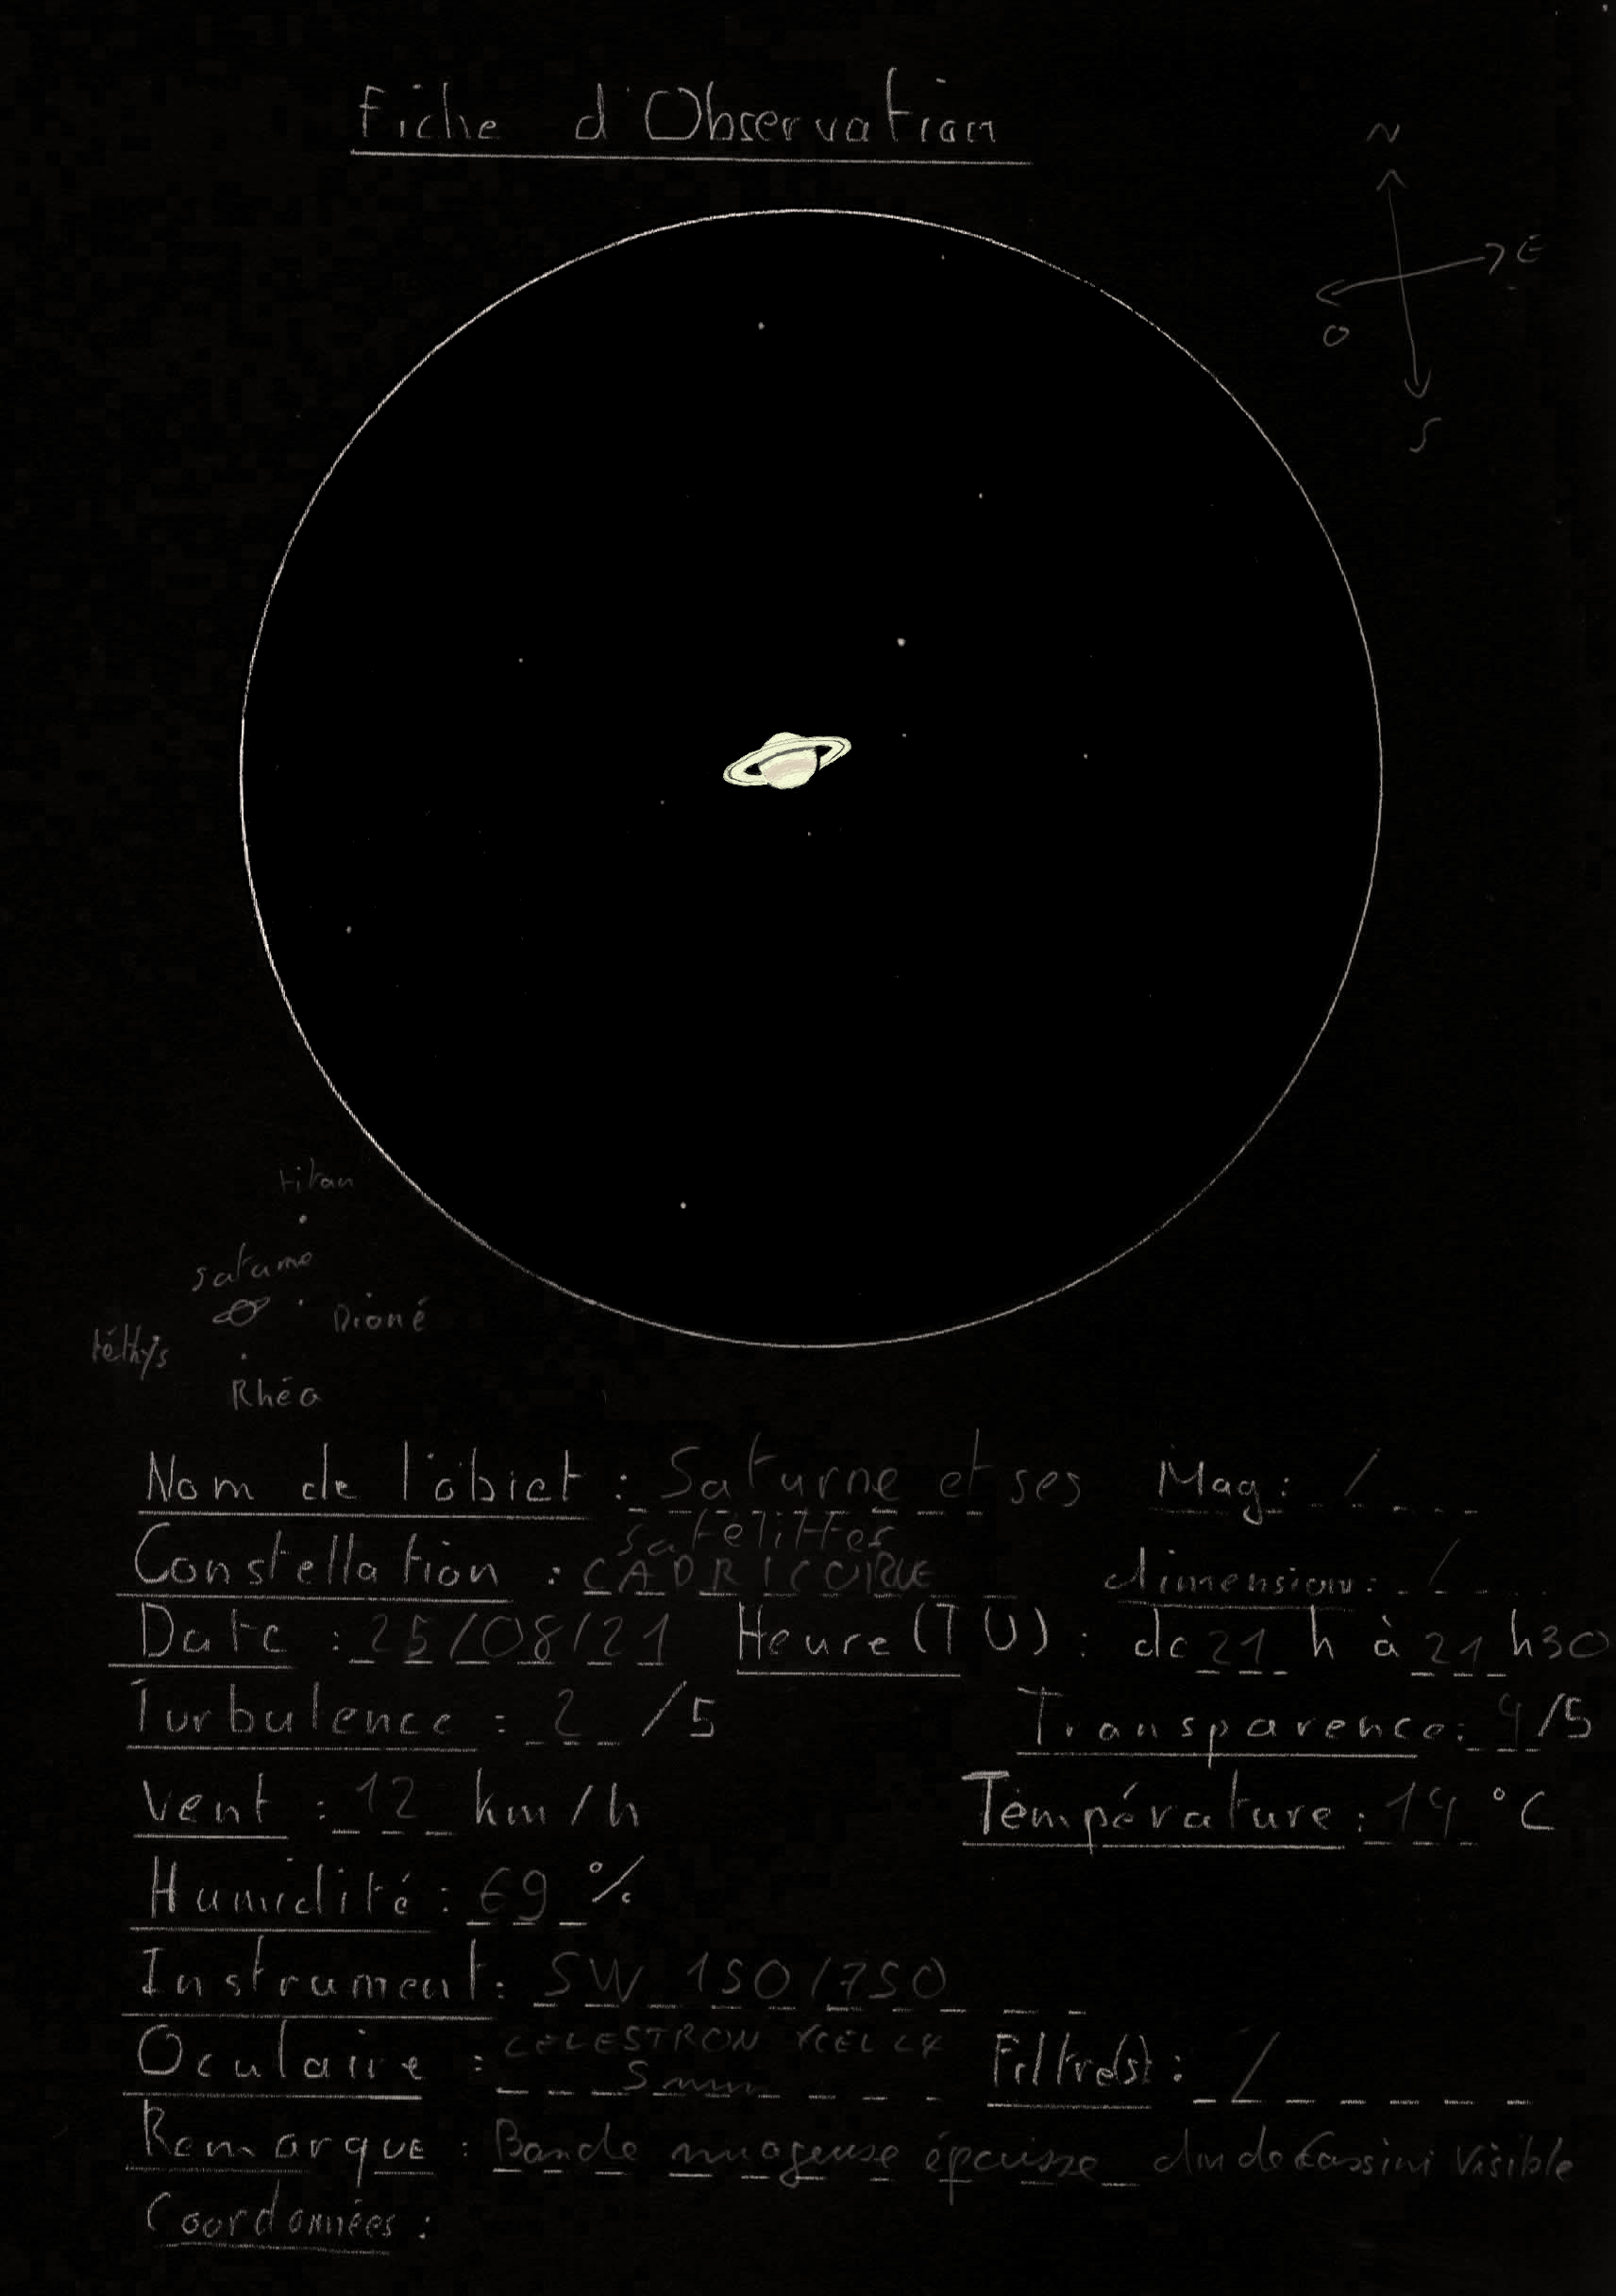 Fiche d'Observation
N
E
O
S
titan
saturne
Dioné
téthys
Rhéa
Nom de l'objet : Saturne et ses Mag : /
satélittes
Constellation : CAPRICORNE dimension : /
Date : 25/08/21 Heure (TU) : de 21 h à 21 h30
Turbulence : 2 /5 Transparence : 4/5
Vent : 12 km/h Température : 14 °C
Humidité : 69 %
Instrument : SW 150/750
Oculaire : CELESTRON XCEL LX Filtre(s) : /
5mm
Remarque : Bande nuageuse épaisse div de Cassini visible
Coordonnées :